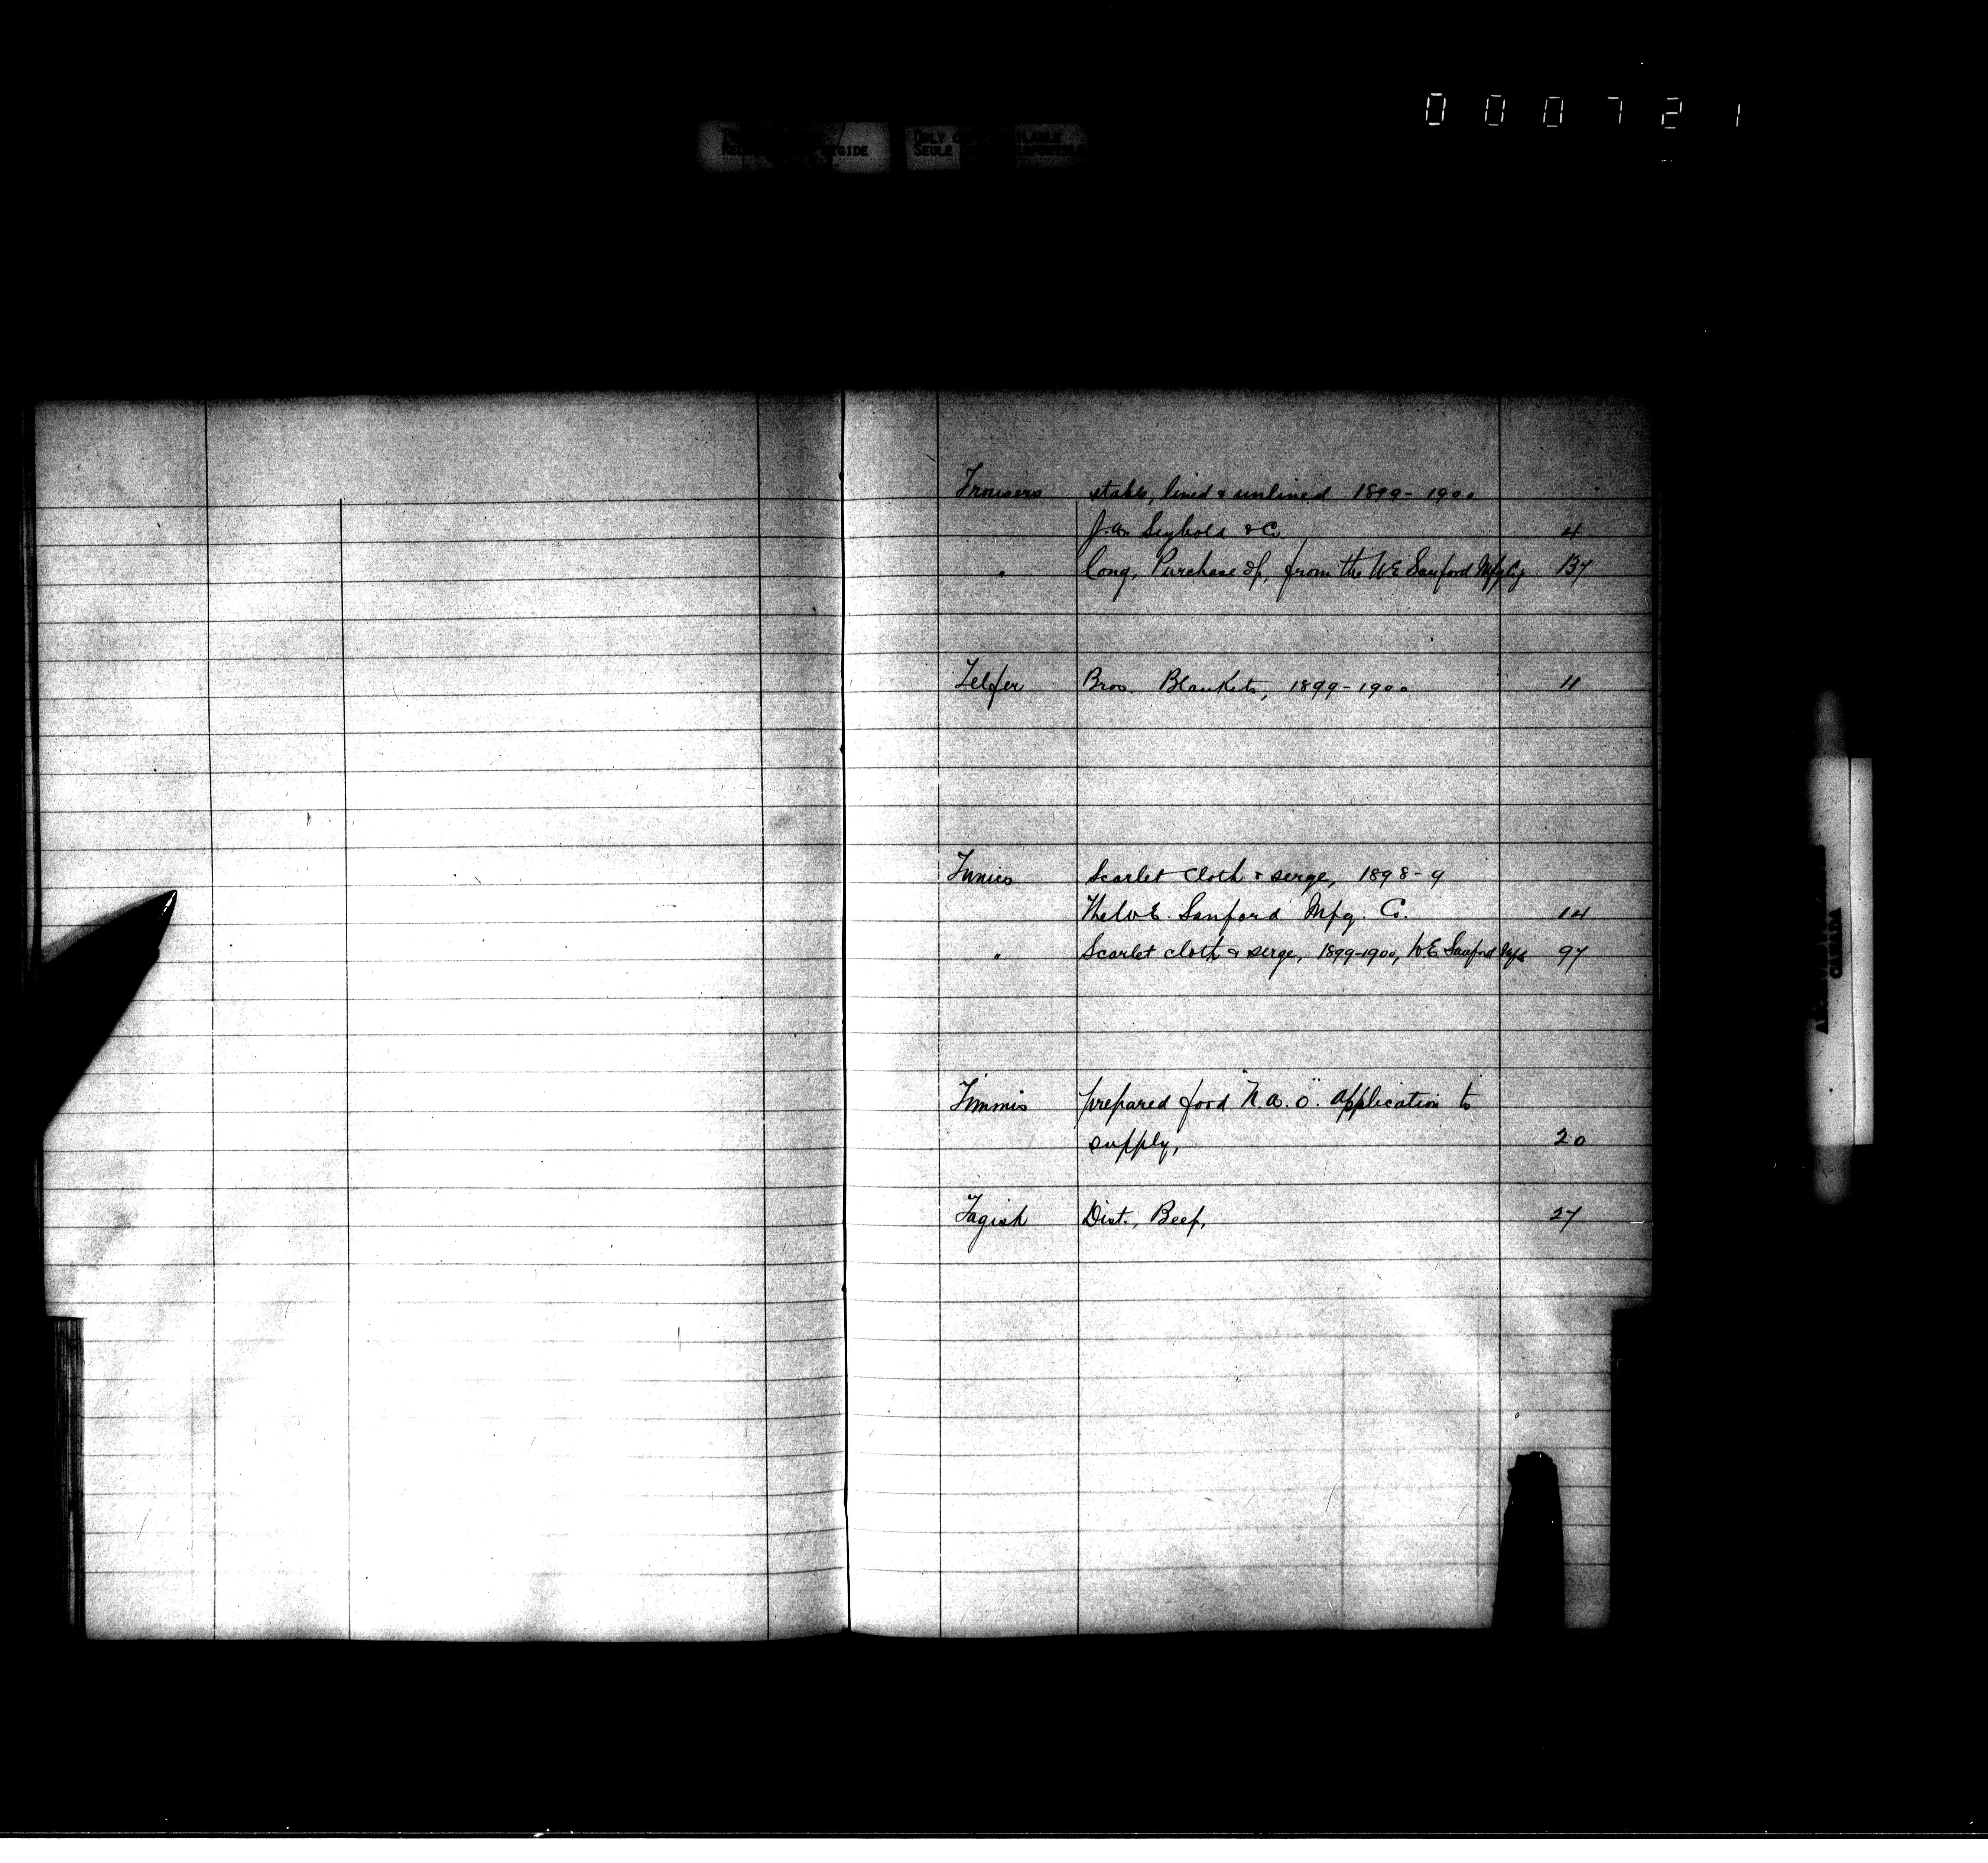 000721
ONLY
SEULE
Trousers stable, lined & unlined 1899-1900
J.W. Seybold & Co. 4
" long, Purchase of, from the W E Sanford Mfg Co 137
Telfer Bros. Blankets, 1899-1900 11
Tunics Scarlet cloth & serge, 1898-9
The W.E. Sanford Mfg. Co. 14
" Scarlet cloth & serge, 1899-1900, W.E Sanford Mfg 97
Timmis prepared food "N.A.O". application to
supply, 20
Tagish Dist., Beef, 27